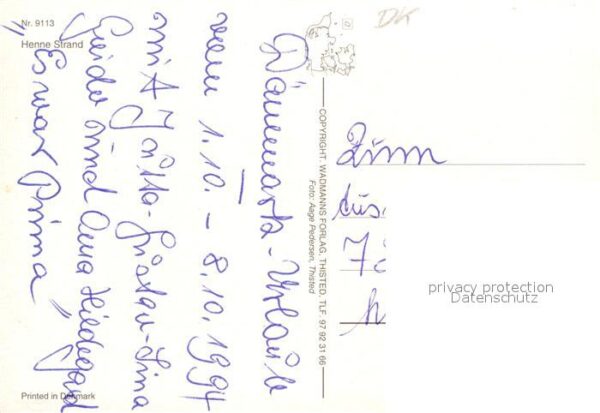 Nr. 9113
Henne Strand
Dänemark-Urlaub
vom 1.10. - 8.10.1994
mit Jutta-Gustav-Lina
Guido und Oma Hildegard
Es war Prima
Printed in Denmark
COPYRIGHT. WADMANNS FORLAG. THISTED. TLF. 97 92 31 66
Foto: Aage Pedersen, Thisted
DK
privacy protection
Datenschutz